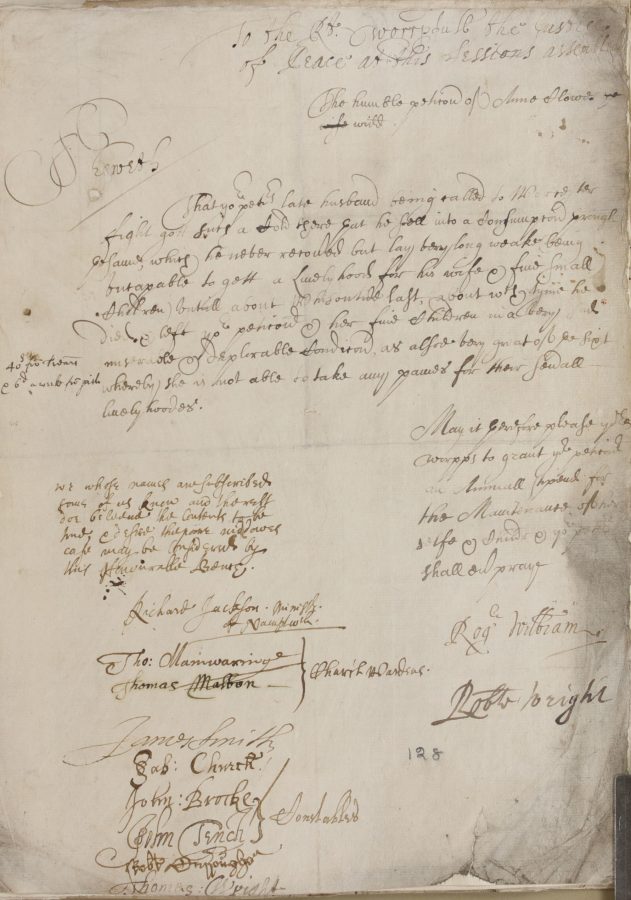 To the Rt. Worrpfull the Justices
of Peace at this Sessions assembl
The humble peticon of Anne Clowe
wife widd
Sheweth
That yor. petrs. late husband being called to Worcester
fight gott such a Cold there that he fell into a Consumpcon through
ye same, which he never recovred but lay very long weake being
uncapable to gett a livelyhood for his wife & five small
Children untill about last, about wch. tyme he
died & left yor. peticonr. & her five Children in a very sad
miserable & deplorable Condicon, as alsoe very great
whereby she is not able to take any paines for their severall
livelyhoodes.
40s
May it therefore please yor.
worpps to grant yor. peticonr
an Annuall stipend for
the Maintenance of her
selfe & Children & yor. petr
shall ever pray
we whose names are subscribed
some of us know and the rest
doe beleeve the Contents to be
true & desire the poore widdowes
case may be Considered by
this Honourable Bench.
Richard Jackson. Ministr.
of Namptwich
Tho: Mainwaringe
Thomas Malbon
Church Wardens.
Rogr. Wilbram
Robte Wright
James Smith
Gab: Church
John: Broche
John Tench
Constables
Robt Burroughes
Thomas: Wright
128